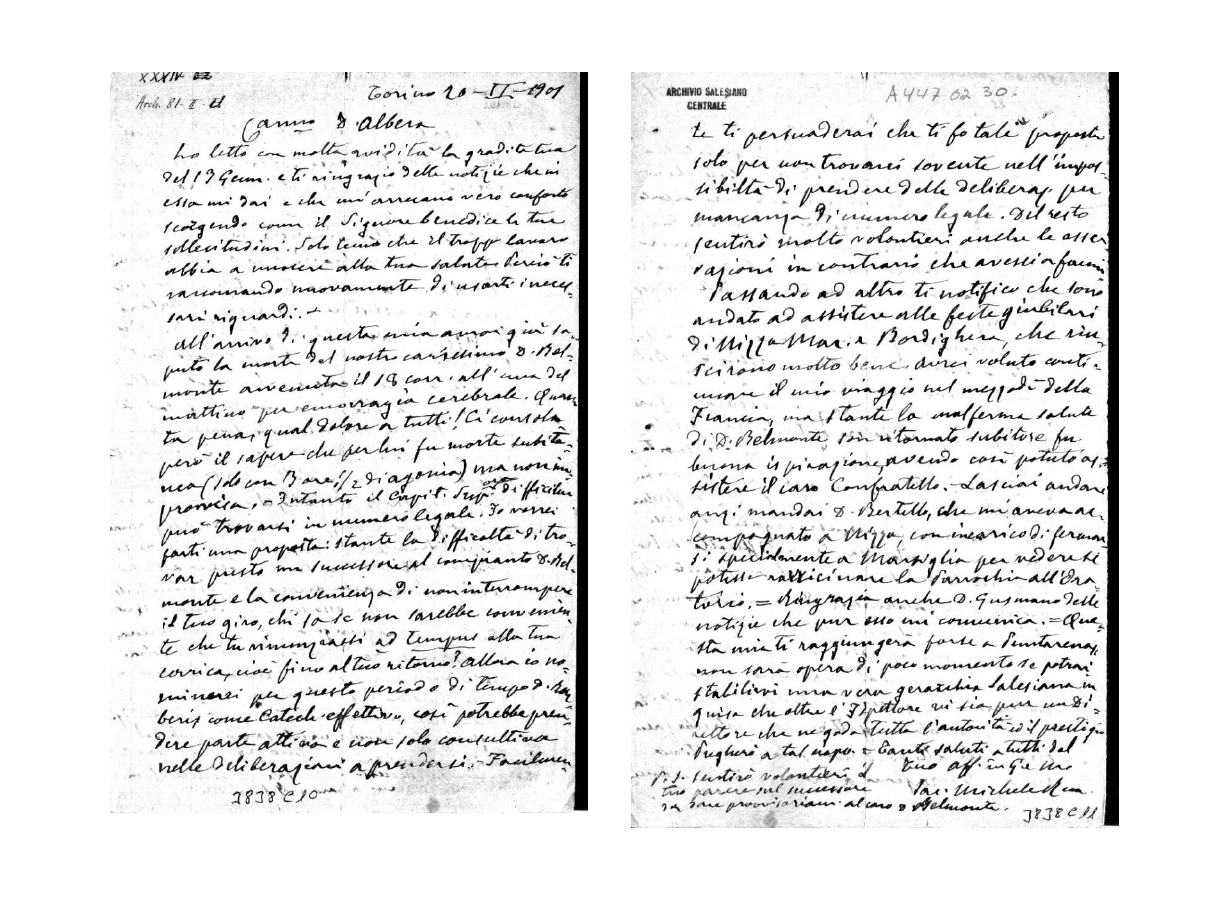 XXXIV
Arch. 81-II-
Torino 20-II-1901
Car.mo D. Albera
ho letto con molta avidità la gradita tua
del 17 Genn. e ti ringrazio delle notizie che in
essa mi dai e che mi arrecano vero conforto
scorgendo come il Signore benedice le tue
sollecitudini. Solo temo che il troppo lavoro
abbia a nuocere alla tua salute. Perciò ti
raccomando nuovamente di usarti i neces-
sari riguardi. -
All'arrivo di questa mia avrai già sa-
puto la morte del nostro carissimo D. Bel-
monte avvenuta il 18 corr. all'una del
mattino per emorragia cerebrale. Quan-
ta pena, qual dolore a tutti! Ci consola
però il sapere che per lui fu morte subita-
nea (solo con 3 ore 1/2 di agonia) ma non im-
provvisa. - Intanto il Capit. Sup.re difficilm.
può trovarsi in numero legale. Io vorrei
farti una proposta: stante la difficoltà di tro-
var presto un successore al compianto D. Bel-
monte e la convenienza di non interrompere
il tuo giro, chi sa se non sarebbe convenien-
te che tu rinunziassi ad tempus alla tua
carica, cioè fino al tuo ritorno? Allora io no-
minerei per questo periodo di tempo D. Bar-
beris come Catech. effettivo, così potrebbe pren-
dere parte attiva e non solo consultiva
nelle deliberazioni a prendersi. - Facilmen-
3838 C 10
ARCHIVIO SALESIANO
CENTRALE
A 447 02 30
te ti persuaderai che ti fo tale proposta
solo per non trovarci sovente nell'impos-
sibiltà di prendere delle deliberaz. per
mancanza di numero legale. Del resto
sentirò molto volontieri anche le osser-
vazioni in contrario che avessi a farmi
Passando ad altro ti notifico che sono
andato ad assistere alle feste giubilari
di Nizza Mar. e Bordighera, che riu-
scirono molto bene. Avrei voluto conti-
nuare il mio viaggio nel mezzodì della
Francia, ma stante la malferma salute
di D. Belmonte son ritornato subito e fu
buona ispirazione, avendo così potuto as-
sistere il caro Confratello. - Lasciai andare
anzi mandai D. Bertello, che mi aveva ac-
compagnato a Nizza, con incarico di fermar-
si specialmente a Marsiglia per vedere se
potesse avvicinare la Parrochia all'Ora-
torio. = Ringrazia anche D. Gusmano delle
notizie che pur esso mi comunica. = Que-
sta mia ti raggiungerà forse a Puntarenas,
non sarà opera di poco momento se potrai
stabilirvi una vera gerarchia Salesiana in
guisa che oltre l'Ispettore vi sia pur un Di-
rettore che ne goda tutta l'autorità ed il prestigio
Pregherò a tal uopo. - Tanti saluti a tutti dal
tuo aff. in G. e M.
Sac. Michele Rua
P.S. Sentirò volontieri il
tuo parere sul successore
da dare provvisoriam. al caro D. Belmonte.
3838 C 11